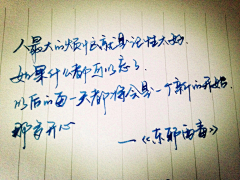 人最大的烦恼就是记性太好.
如果什么都可以忘了.
以后的每一天都将会是一个新的开始.
那多开心
—《东邪西毒》